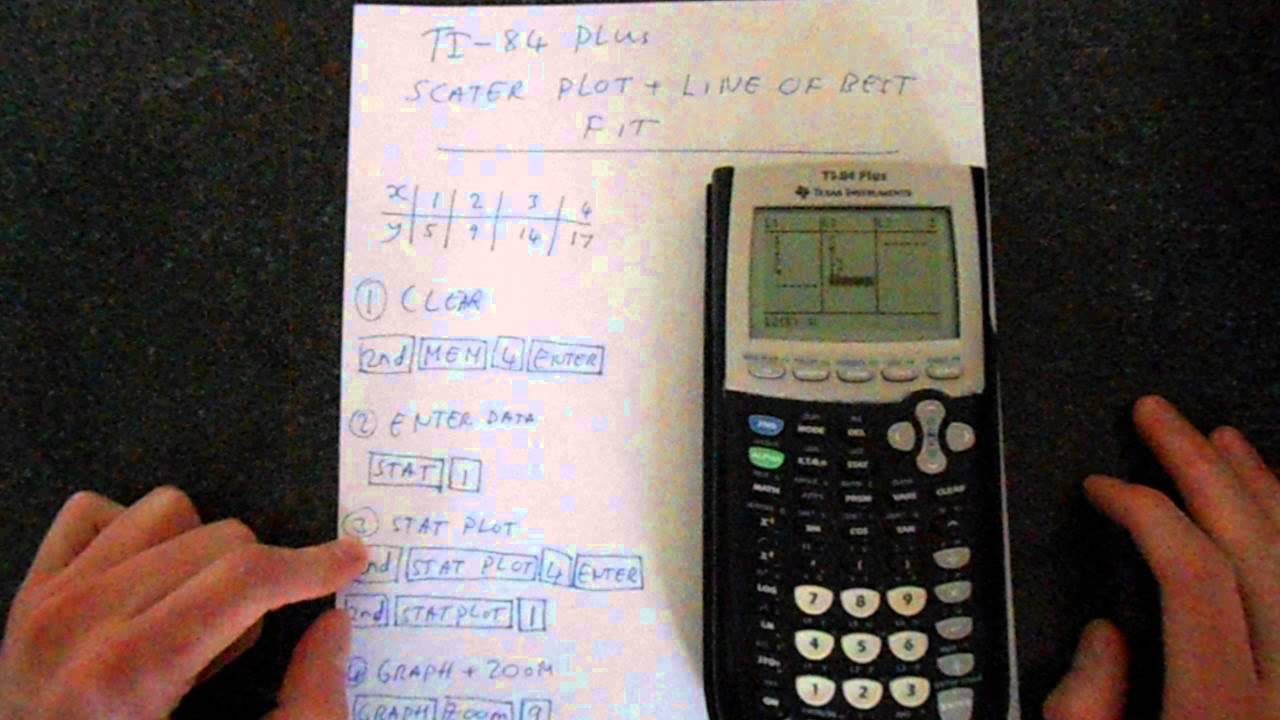 TI-84 Plus
SCATER PLOT + LINE OF BEST
FIT
x 1 2 3 4
y 5 9 14 17
① CLEAR
2nd MEM 4 ENTER
② ENTER DATA
STAT 1
③ STAT PLOT
2nd STAT PLOT 4 ENTER
2nd STATPLOT 1
④ GRAPH + ZOOM
GRAPH Zoom 9
TI-84 Plus
TEXAS INSTRUMENTS
L1 L2 L3 2
2ND MODE DEL
ALPHA X,T,θ,n STAT
MATH APPS PRGM VARS CLEAR
SIN COS TAN
LOG 7 8 9
LN 4 5 6
STO 1 2 3
ON